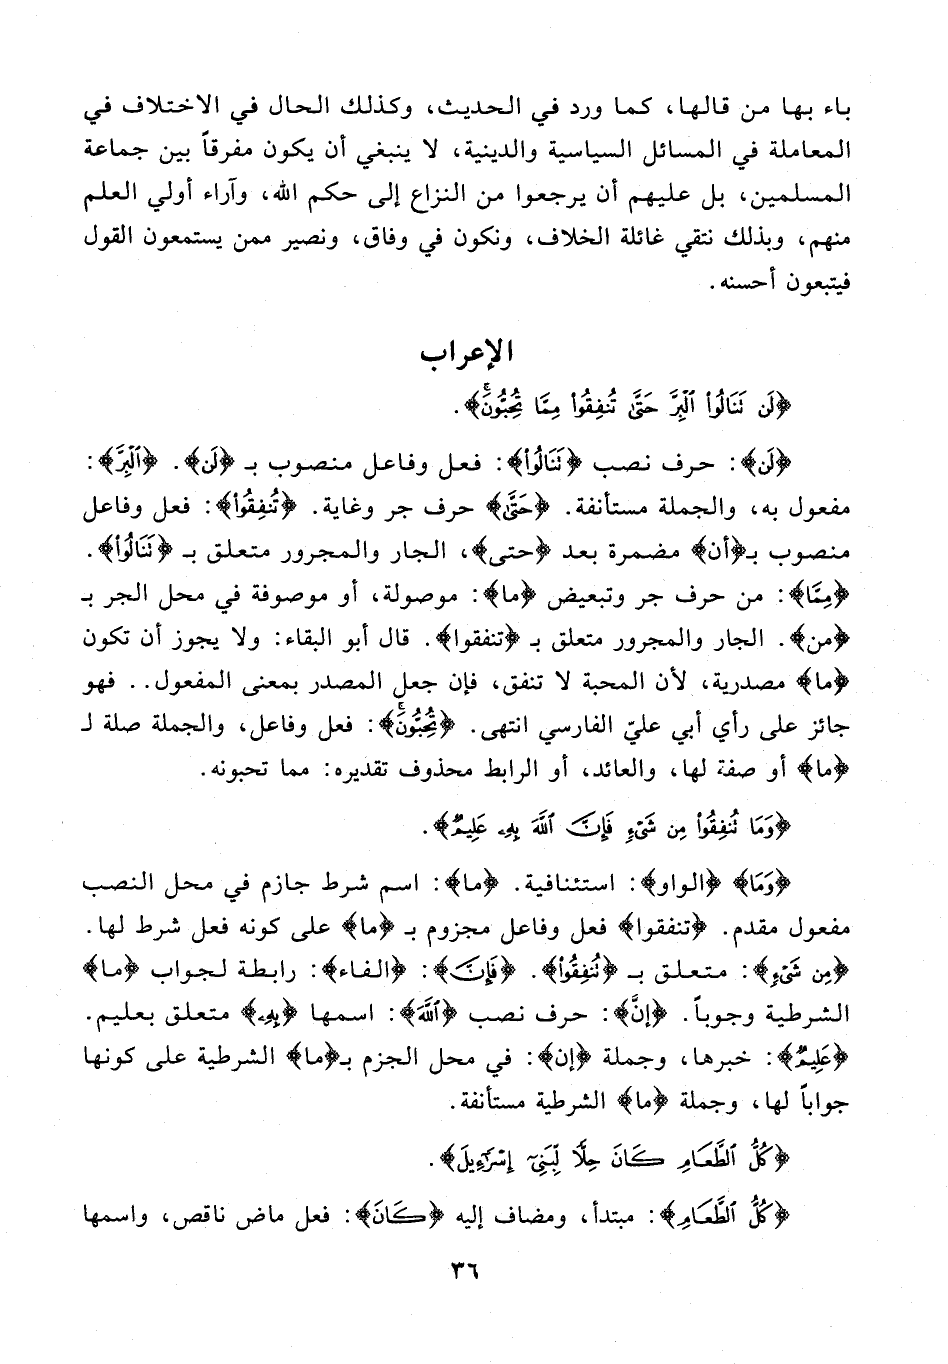 باء بها من قالها، كما ورد في الحديث، وكذلك الحال في الاختلاف في
المعاملة في المسائل السياسية والدينية، لا ينبغي أن يكون مفرقاً بين جماعة
المسلمين، بل عليهم أن يرجعوا من النزاع إلى حكم الله، وآراء أولي العلم
منهم، وبذلك نتقي غائلة الخلاف، ونكون في وفاق، ونصير ممن يستمعون القول
فيتبعون أحسنه.
الإعراب
﴿لَن نَنَالُواْ ٱلْبِرَّ حَتَّىٰ تُنفِقُواْ مِمَّا تُحِبُّونَۚ﴾.
﴿لَن﴾: حرف نصب ﴿نَنَالُواْ﴾: فعل وفاعل منصوب بـ ﴿لَن﴾. ﴿ٱلْبِرَّ﴾:
مفعول به، والجملة مستأنفة. ﴿حَتَّىٰ﴾ حرف جر وغاية. ﴿تُنفِقُواْ﴾: فعل وفاعل
منصوب بـ﴿أن﴾ مضمرة بعد ﴿حتى﴾، الجار والمجرور متعلق بـ ﴿نَنَالُواْ﴾.
﴿مِمَّا﴾: من حرف جر وتبعيض ﴿ما﴾: موصولة، أو موصوفة في محل الجر بـ
﴿من﴾. الجار والمجرور متعلق بـ ﴿تنفقوا﴾. قال أبو البقاء: ولا يجوز أن تكون
﴿ما﴾ مصدرية، لأن المحبة لا تنفق، فإن جعل المصدر بمعنى المفعول.. فهو
جائز على رأي أبي عليّ الفارسي انتهى. ﴿تُحِبُّونَۚ﴾: فعل وفاعل، والجملة صلة لـ
﴿ما﴾ أو صفة لها، والعائد، أو الرابط محذوف تقديره: مما تحبونه.
﴿وَمَا نُنفِقُواْ مِن شَىْءٍ فَإِنَّ ٱللَّهَ بِهِۦ عَلِيمٌ﴾.
﴿وَمَا﴾ ﴿الواو﴾: استئنافية. ﴿ما﴾: اسم شرط جازم في محل النصب
مفعول مقدم. ﴿تنفقوا﴾ فعل وفاعل مجزوم بـ ﴿ما﴾ على كونه فعل شرط لها.
﴿مِن شَىْءٍ﴾: متعلق بـ ﴿نُنفِقُواْ﴾. ﴿فَإِنَّ﴾: ﴿الفاء﴾: رابطة لجواب ﴿ما﴾
الشرطية وجوباً. ﴿إنَّ﴾: حرف نصب ﴿ٱللَّهَ﴾: اسمها ﴿بِهِۦ﴾ متعلق بعليم.
﴿عَلِيمٌ﴾: خبرها، وجملة ﴿إن﴾: في محل الجزم بـ﴿ما﴾ الشرطية على كونها
جواباً لها، وجملة ﴿ما﴾ الشرطية مستأنفة.
﴿كُلُّ ٱلطَّعَامِ كَانَ حِلًّا لِّبَنِىٓ إِسْرَٰٓءِيلَ﴾.
﴿كُلُّ ٱلطَّعَامِ﴾: مبتدأ، ومضاف إليه ﴿كَانَ﴾: فعل ماض ناقص، واسمها
٣٦